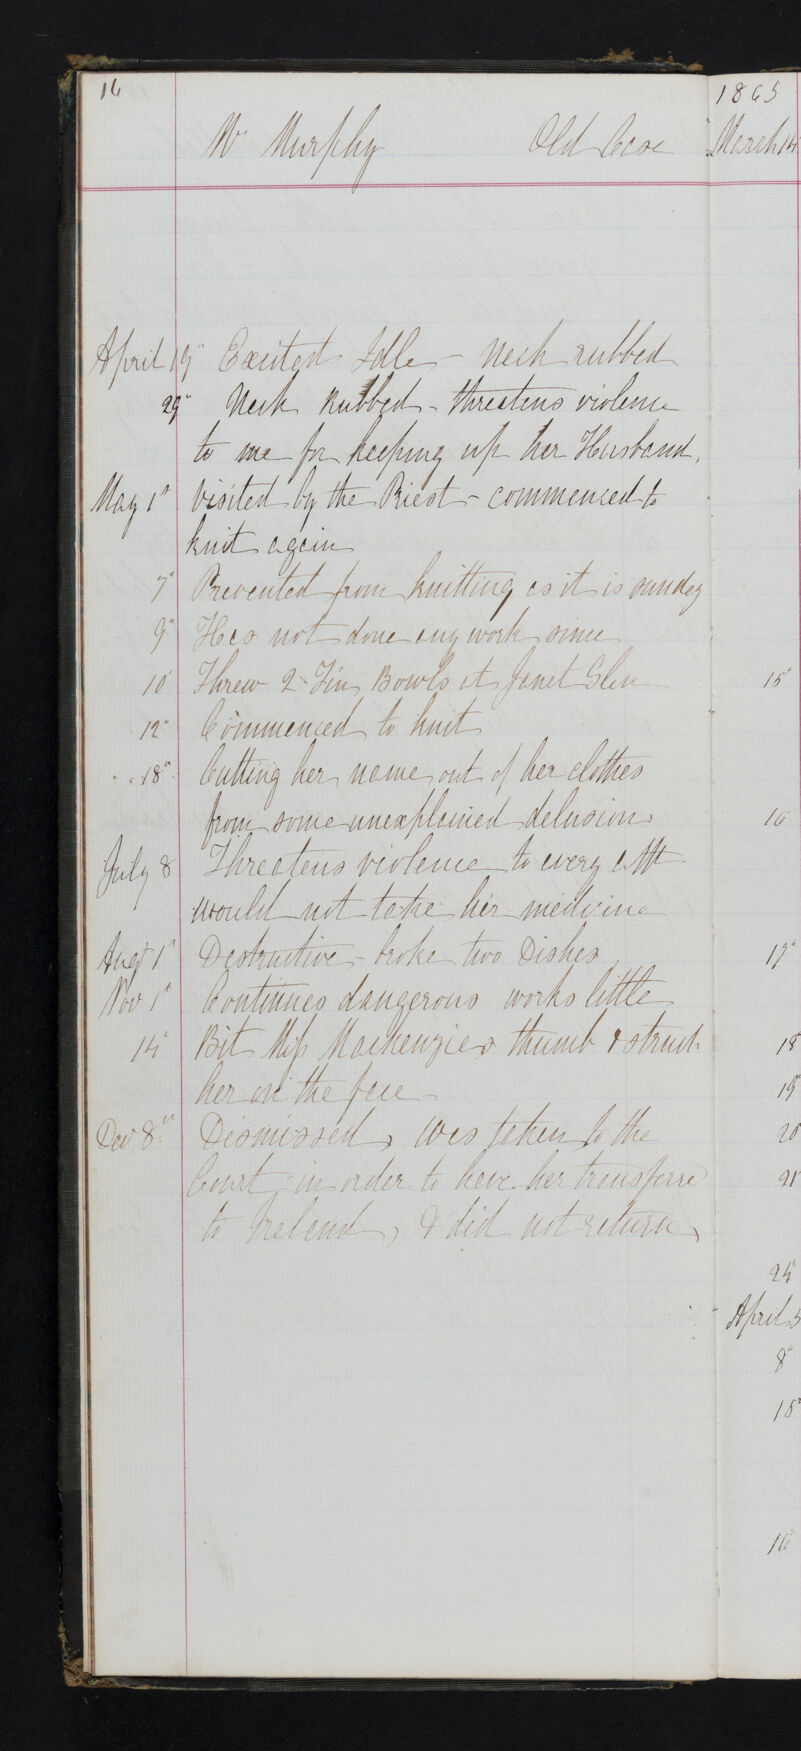 16
Mrs Murphy Old Case
April 19" Excited Idle - Neck rubbed
29" Neck Rubbed - threatens violence
to me for keeping up her Husband,
May 1st Visited by the Priest - commenced to
knit again
7" Prevented from knitting as it is sunday
9" Has not done any work since
10 Threw 2 Tin Bowls at Janet Glen
12" Commenced to knit
18" Cutting her name out of her clothes
from some unexplained delusion
July 8 Threatens violence to every att
would not take her medicine
Augt 1st Destructive - broke two Dishes
Nov 1st Continues dangerous works little
14" Bit Miss Mackenzies thumb & struck
her on the face -
Dec 8" Dismissed, was taken to the
Court in order to have her transferre
to Ireland, & did not return,
1865
March 14
15"
16
17"
18
19"
20
21
25
April 5
8"
15"
16